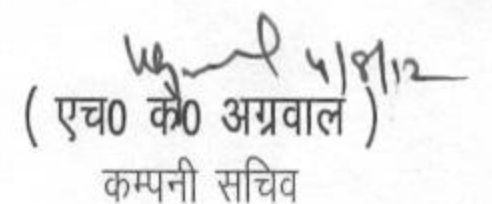 4/8/12
( एच0 के0 अग्रवाल )
कम्पनी सचिव